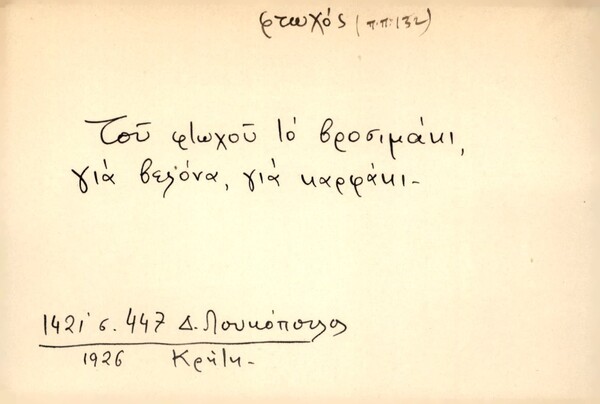 φτωχός (π.π. 132)
Τοῦ φτωχοῦ τό βροσιμάκι,
γιά βελόνα, γιά καρφάκι-
1421 σ. 447 Δ. Λουκόπουλος
1926 Κρήτη-